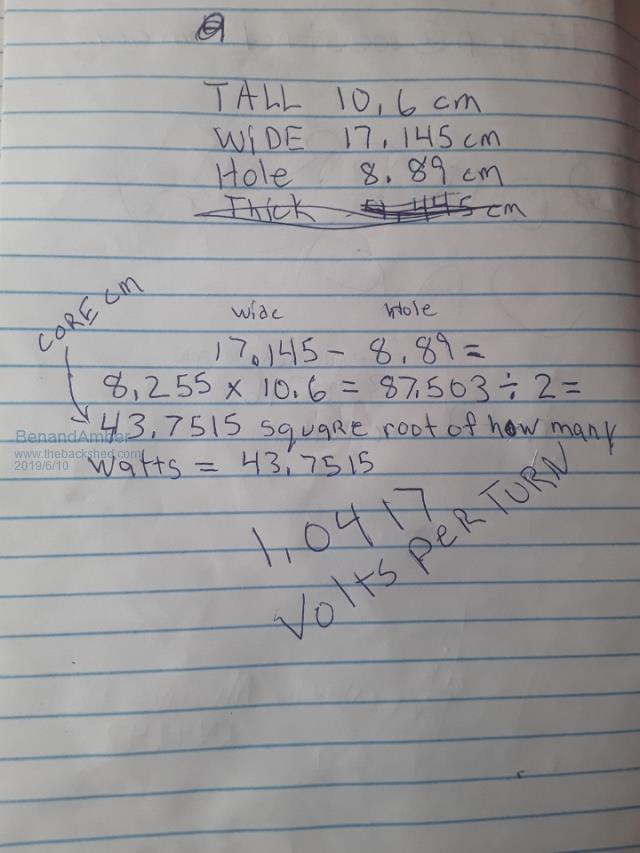 TALL 10.6 cm
WIDE 17.145 cm
Hole 8.89 cm
Thick cm
CORE CM
Wide Hole
17.145 - 8.89 =
8.255 x 10.6 = 87.503 ÷ 2 =
43.7515 square root of how many
Watts = 43.7515
1.0417
Volts Per TURN
BenandAmber
www.thebackshed.com
2019/6/10